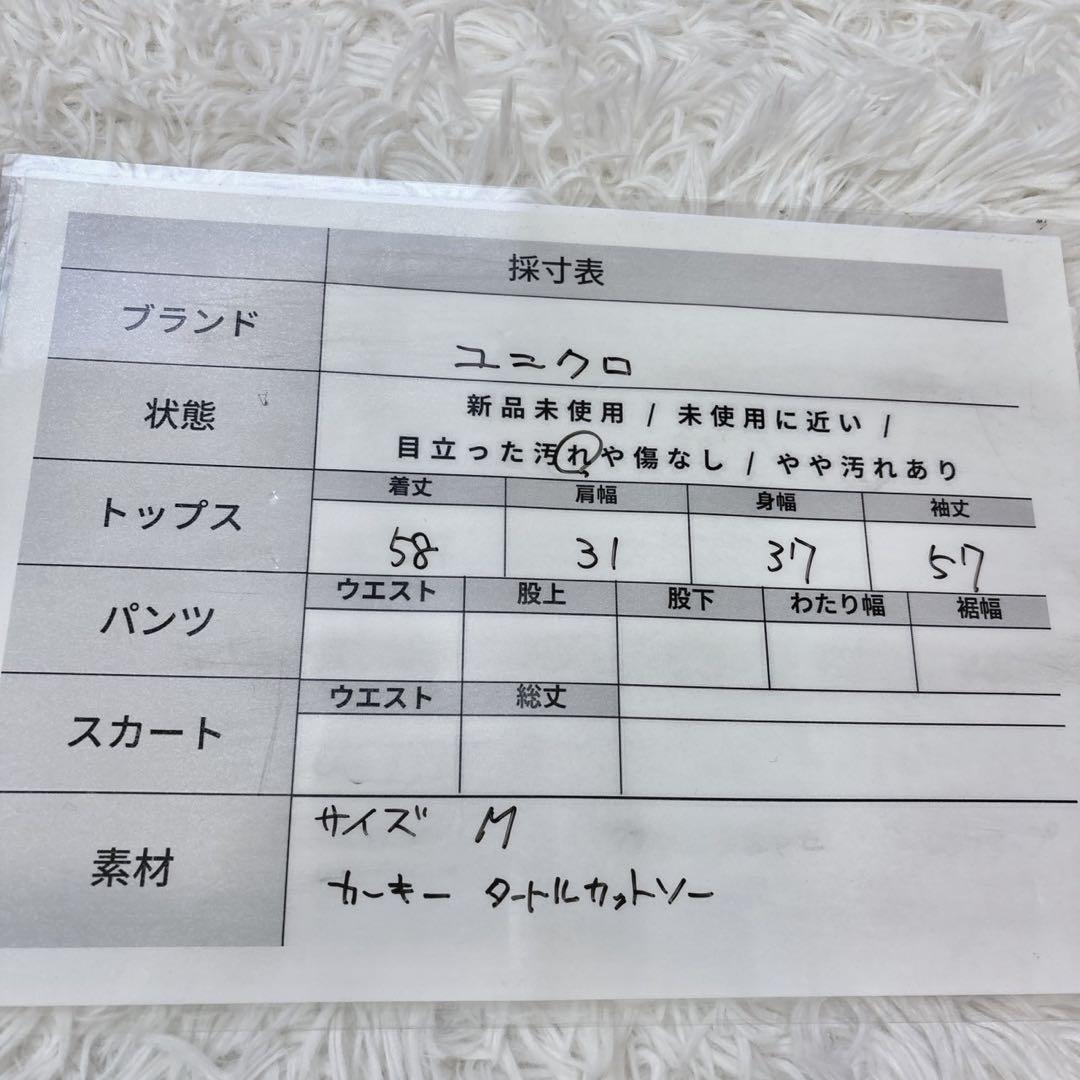 採寸表
ブランド
ユニクロ
状態
新品未使用 / 未使用に近い /
目立った汚れや傷なし / やや汚れあり
トップス
着丈 肩幅 身幅 袖丈
58 31 37 57
パンツ
ウエスト 股上 股下 わたり幅 裾幅
スカート
ウエスト 総丈
素材
サイズ M
カーキー タートルカットソー